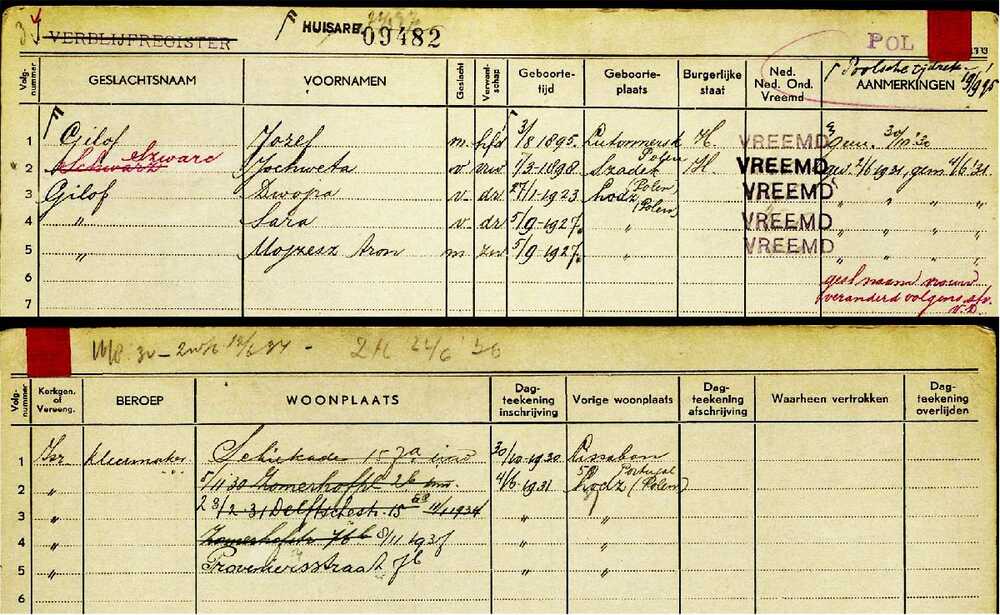 VERBLIJFREGISTER HUISARB. 09482 POL
Volg-nummer GESLACHTSNAAM VOORNAMEN Geslacht Verwand-schap Geboorte-tijd Geboorte-plaats Burgerlijke staat Ned. Ned. Ond. Vreemd AANMERKINGEN
1 Gilof Jozef m hfd 3/8 1895 Lutomersk Polen H. VREEMD 30/10 '30
2 Schwarz Jochweta v vrw 1898 Szadek (Polen) H VREEMD 2/6 1931, 4/6 '31
3 Gilof Dwojra v dr 27/1-1923 Lodz (Polen) VREEMD " " "
4 " Sara v dr 5/9-1927 " VREEMD " " "
5 " Mojzesz Aron m zn 5/9-1927 " VREEMD " " "
6 gesl naam vrouw
7 veranderd volgens
Volg-nummer Kerkgen. of Vereeng. BEROEP WOONPLAATS Dag-teekening inschrijving Vorige woonplaats Dag-teekening afschrijving Waarheen vertrokken Dag-teekening overlijden
1 Isr kleermaker Schiekade 157a 30/10-1930 Lissabon Portugal
2 " 5/11 30 Zomerhofstr 26 4/6-1931 Lodz (Polen)
3 " 23/2-31 Delftschestr. 15 11/1 1934 " "
4 " Zomerhofstr 76b 8/11 1935 " "
5 " Provenierstraat " "
6